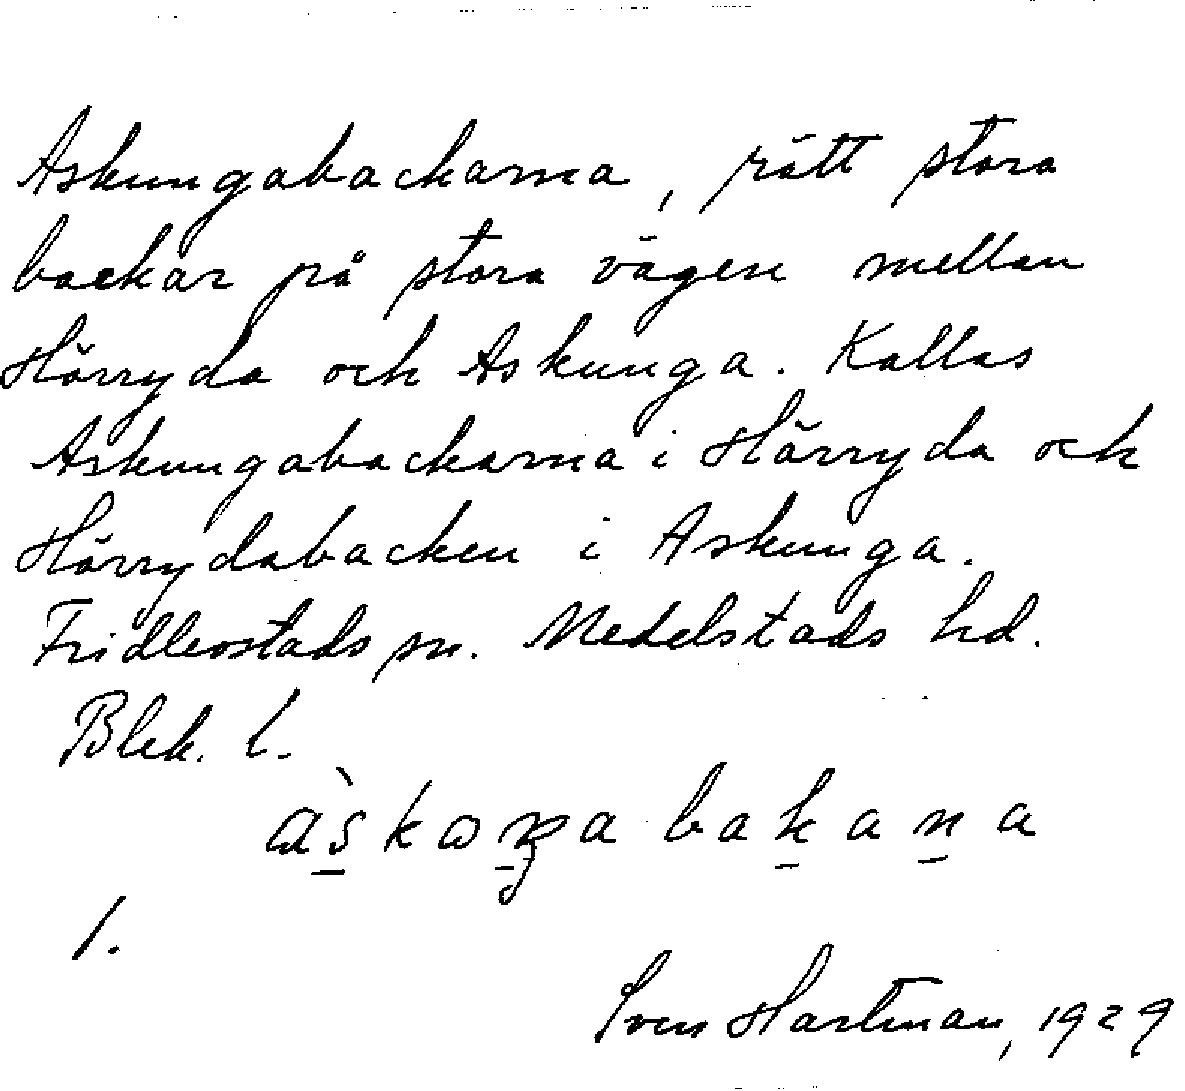 Askungabackarna, rätt stora
backar på stora vägen mellan
Hörryda och Askunga. Kallas
Askungabackarna i Hörryda och
Hörrydabacken i Askunga.
Fridlevstads sn. Medelstads hd.
Blek. l.
1.
Sven Hartman, 1929